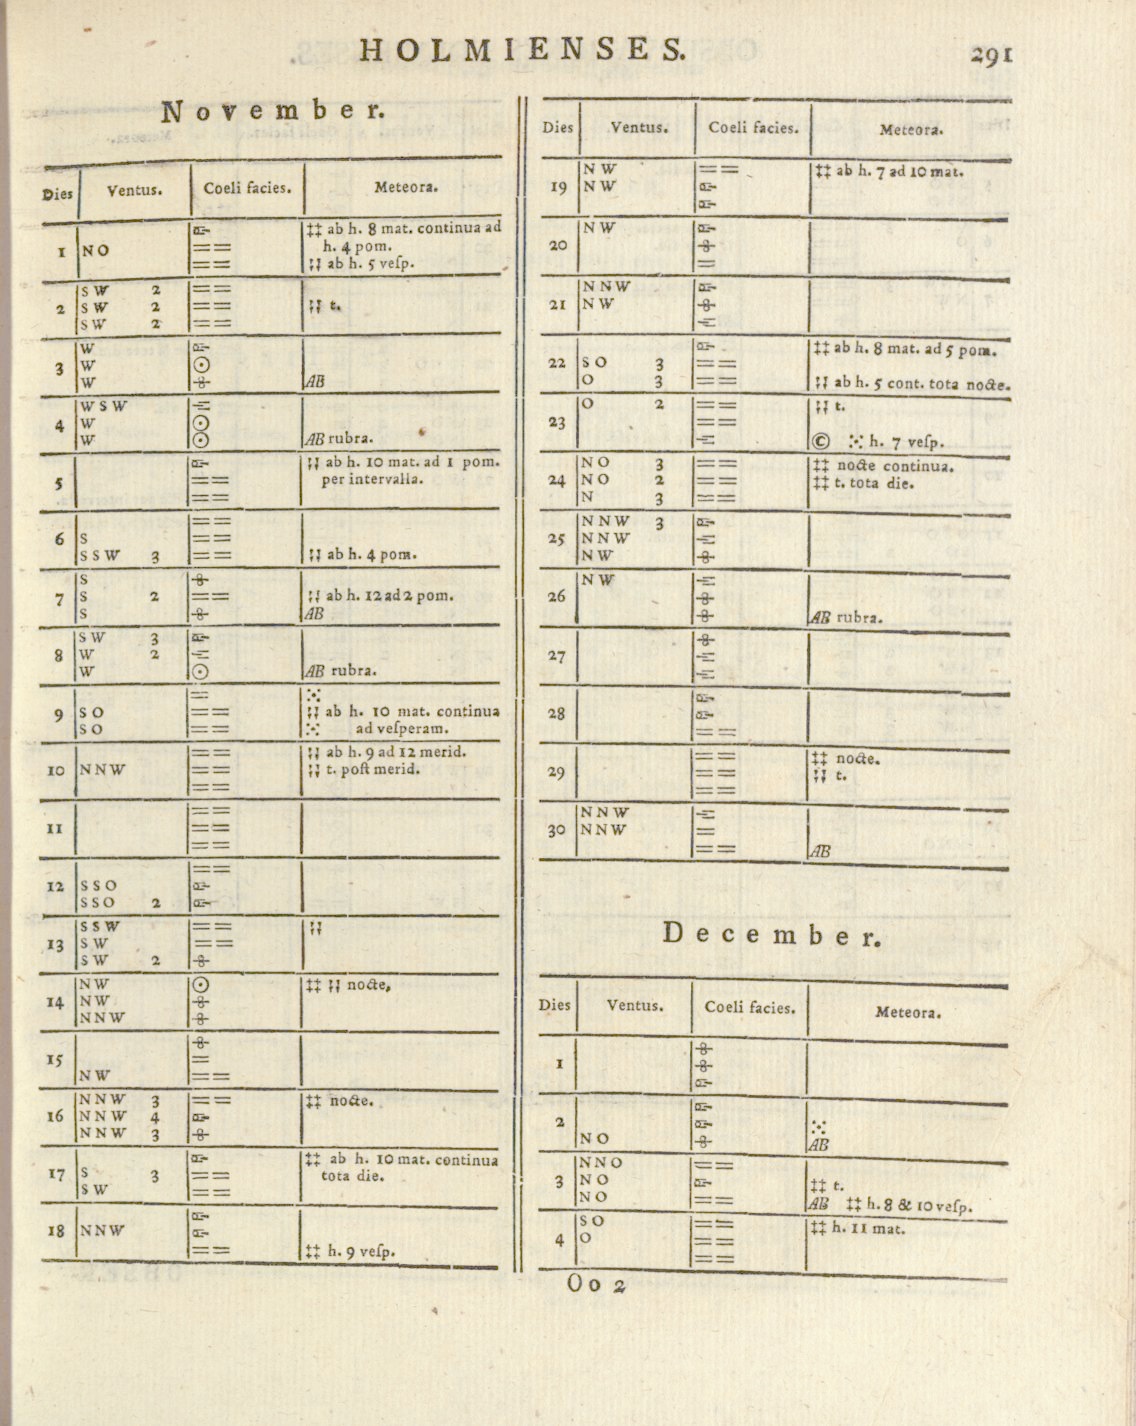 HOLMIENSES. 291
November.
Dies Ventus. Coeli facies. Meteora.
‡‡ ab h. 8 mat. continua ad
1 NO == h. 4 pom.
== ;; ab h. 5 veſp.
SW 2 ==
2 SW 2 == ;; t.
SW 2 ==
W
3 W ☉
W AB
WSW
4 W ☉
W ☉ AB rubra.
;; ab h. 10 mat. ad 1 pom.
5 == per intervalla.
==
==
6 S ==
SSW 3 == ;; ab h. 4 pom.
S
7 S 2 == ;; ab h. 12 ad 2 pom.
S AB
SW 3
8 W 2
W ☉ AB rubra.
=
9 SO == ;; ab h. 10 mat. continua
SO == ad veſperam.
== ;; ab h. 9 ad 12 merid.
10 NNW == ;; t. poſt merid.
==
==
11 ==
==
==
12 SSO
SSO 2
SSW == ;;
13 SW ==
SW 2
NW ☉ ‡‡ ;; nocte,
14 NW
NNW
15 =
NW ==
NNW 3 == ‡‡ nocte.
16 NNW 4
NNW 3
‡‡ ab h. 10 mat. continua
17 S 3 == tota die.
SW ==
18 NNW
== ‡‡ h. 9 veſp.
Dies Ventus. Coeli facies. Meteora.
NW == ‡‡ ab h. 7 ad 10 mat.
19 NW
NW
20
=
NNW
21 NW
‡‡ ab h. 8 mat. ad 5 pom.
22 SO 3 ==
O 3 == ;; ab h. 5 cont. tota nocte.
O 2 == ;; t.
23 ==
© h. 7 veſp.
NO 3 == ‡‡ nocte continua.
24 NO 2 == ‡‡ t. tota die.
N 3 ==
NNW 3
25 NNW
NW
NW
26
AB rubra.
27
28
==
== ‡‡ nocte.
29 == ;; t.
==
NNW
30 NNW =
== AB
December.
Dies Ventus. Coeli facies. Meteora.
1
2
NO AB
NNO ==
3 NO ‡‡ t.
NO == AB ‡‡ h. 8 & 10 veſp.
SO == ‡‡ h. 11 mat.
4 O ==
==
Oo 2